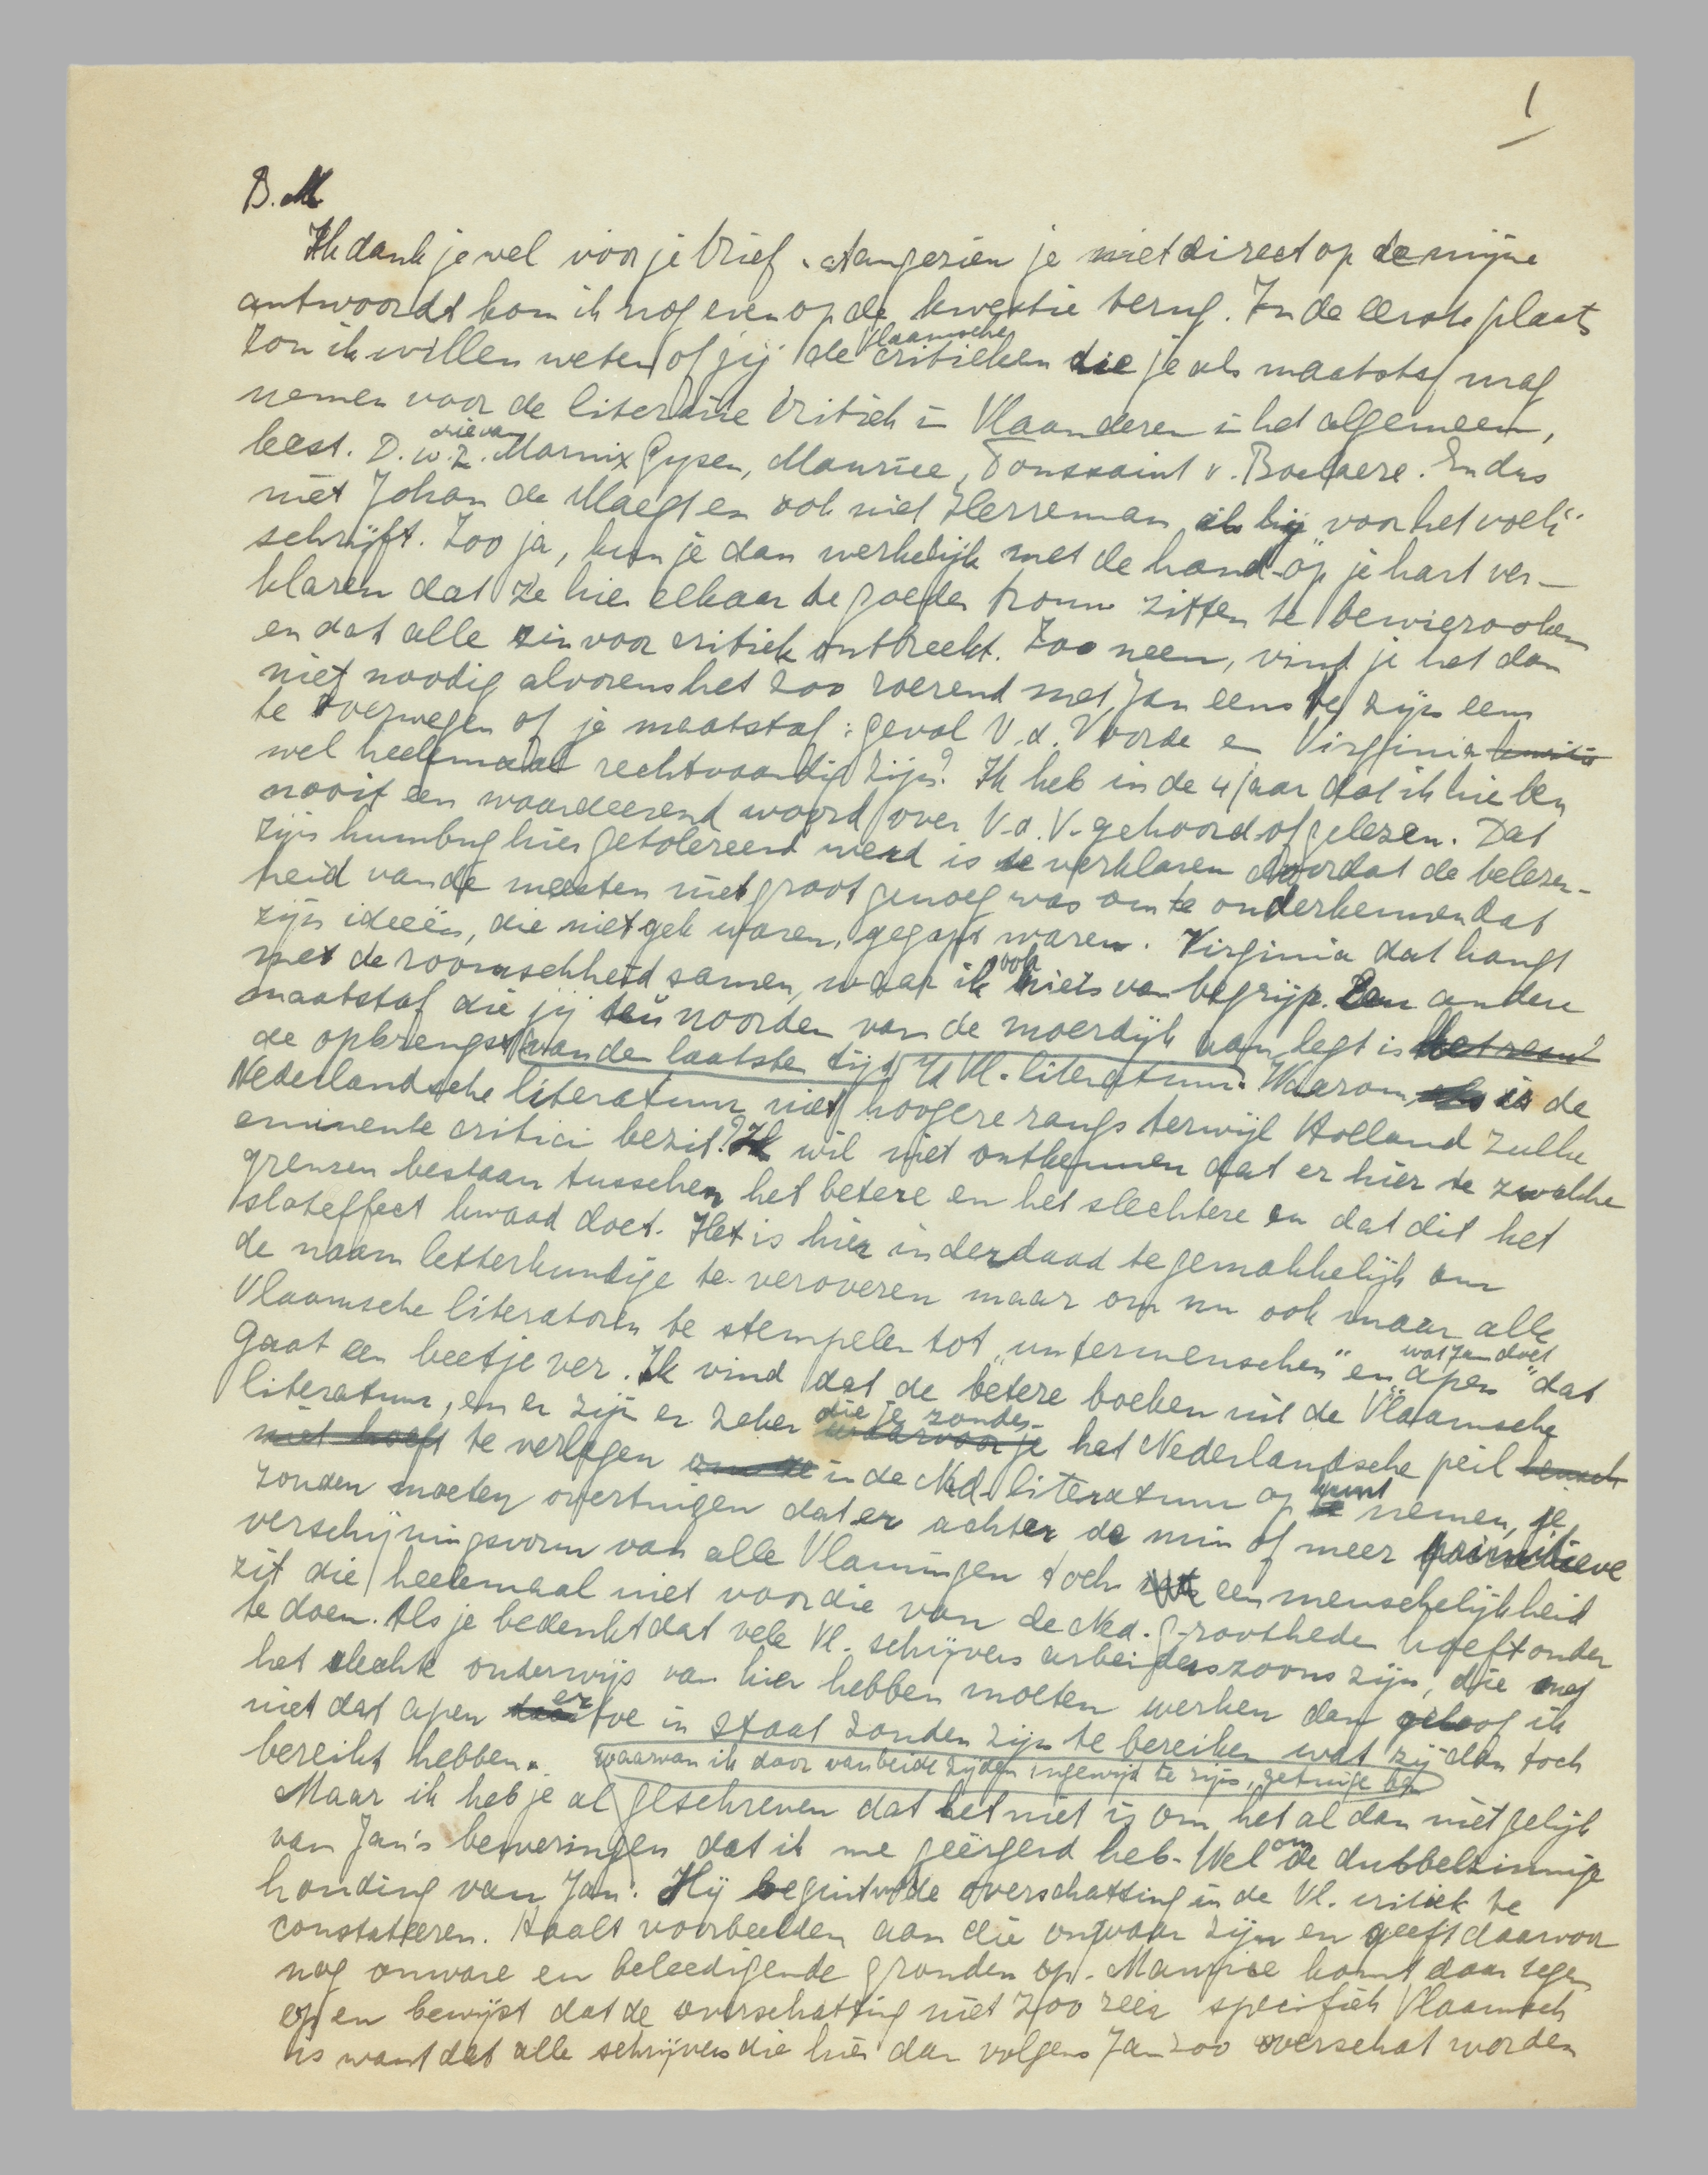 1
B. M
Ik dank je wel voor je brief. Aangezien je niet direct op de mijne
antwoordt kom ik nog even op de kwestie terug. In de eerste plaats
zou ik willen weten of jij de Vlaamsche critieken die je als maatstaf mag
nemen voor de literaire critiek in Vlaanderen in het algemeen,
leest. D.w.z. die van Marnix Gysen, Maurice, Toussaint v. Boelaere. En dus
niet Johan de Maegt en ook niet Herreman als hij "voor het volk"
schrijft. Zoo ja, kun je dan werkelijk met de hand op je hart ver-
klaren dat ze hier elkaar te goeder trouw zitten te bewierooken
en dat alle zin voor critiek ontbreekt. Zoo neen, vind je het dan
niet noodig alvorens het zoo roerend met Jan eens te zijn eens
te overwegen of je maatstaf: geval V.d. Voorde en Virginia
wel heelemaal rechtvaardig zijn? Ik heb in de 4 jaar dat ik hier ben
nooit een waardeerend woord over V.d.V. gehoord of gelezen. Dat
zijn humbug hier getolereerd werd is te verklaren doordat de belezen-
heid van de meesten niet groot genoeg was om te onderkennen dat
zijn ideeën, die niet gek waren, gegapt waren. Virginia dat hangt
met de roomschheid samen, waar ik ook niets van begrijp. Een andere
maatstaf die jij ten noorden van de moerdijk aanlegt is
de opbrengst van den laatsten tijd der Vl. literatuur. Waarom is de
Nederlandsche literatuur niet hoogere rangs terwijl Holland zulke
eminente critici bezit? Ik wil niet ontkennen dat er hier te zwakke
grenzen bestaan tusschen het betere en het slechtere en dat dit het
sloteffect kwaad doet. Het is hier inderdaad te gemakkelijk om
de naam letterkundige te veroveren maar om nu ook maar alle
Vlaamsche literatoren te stempelen tot "untermenschen" en "apen" wat Jan doet dat
gaat een beetje ver. Ik vind dat de betere boeken uit de Vlaamsche
literatuur, en er zijn er zeker die je zonder het Nederlandsche peil
te verlagen in de Ned. literatuur op kunt nemen, je
zouden moeten overtuigen dat er achter de min of meer primitieve
verschijningsvorm van alle Vlamingen toch een menschelijkheid
zit die heelemaal niet voor die van de Ned. Grootheden hoeft onder
te doen. Als je bedenkt dat vele Vl. schijvers arbeiderszoons zijn, die met
het slechte onderwijs van hier hebben moeten werken dan geloof ik
niet dat apen er toe in staat zouden zijn te bereiken wat zij dan toch
bereikt hebben. waarvan ik door van beide zijden ingewijd te zijn, getuige ben
Maar ik heb je al geschreven dat het niet is om het al dan niet gelijk
van Jan's beweringen dat ik me geërgerd heb. Wel om de dubbelzinnige
houding van Jan. Hij begint de overschatting in de Vl. critiek te
constateeren. Haalt voorbeelden aan die onwaar zijn en geeft daarvoor
nog onware en beleedigende gronden op. Maurice komt daar tegen
op en bewijst dat de overschatting niet zoo zeer specifiek Vlaamsch
is want dat alle schrijvers die hier dan volgens Jan zoo overschat worden